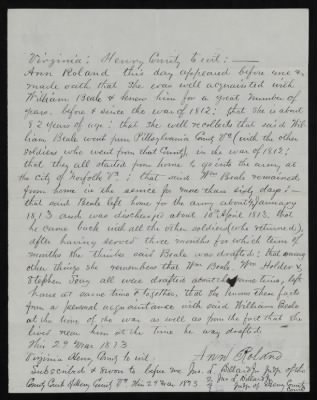 Virginia: Henry County to wit: —
Ann Roland this day appeared before me &
made oath that she was well acquainted with
William Beale & knew him for a great number of
years, before & since the war of 1812; that she is about
82 years of age: that she well recollects that said Wil-
liam Beale went from Pittsylvania County Va (with the other
soldiers who went from that County), in the war of 1812;
that they all started from home to go into the army, at
the City of Norfolk Va: that said Wm Beale remained
from home in the service for more than sixty days: —
that said Beale left home for the army about January
1813 and was discharged about 10th April 1813. that
he came back with all the other soldiers (who returned),
after having served three months for which term of
months she thinks said Beale was drafted: that among
other things she remembers that Wm Beale, Wm Holder &
Stephen all were drafted about the same time, left
home at same time & together, that she knows these facts
from a personal acquaintance with said William Beale
at the time of the war as well as from the fact that she
lived near him at the time he was drafted.
This 29 Mar 1873
Ann Roland
Virginia Henry County to wit:
Subscribed & sworn to before me Jno. L. Dillard Jr. Judge of the
County Court of Henry County Va This 29 Mar 1873.
Jno. L. Dillard Jr.
Judge of Henry County
Court